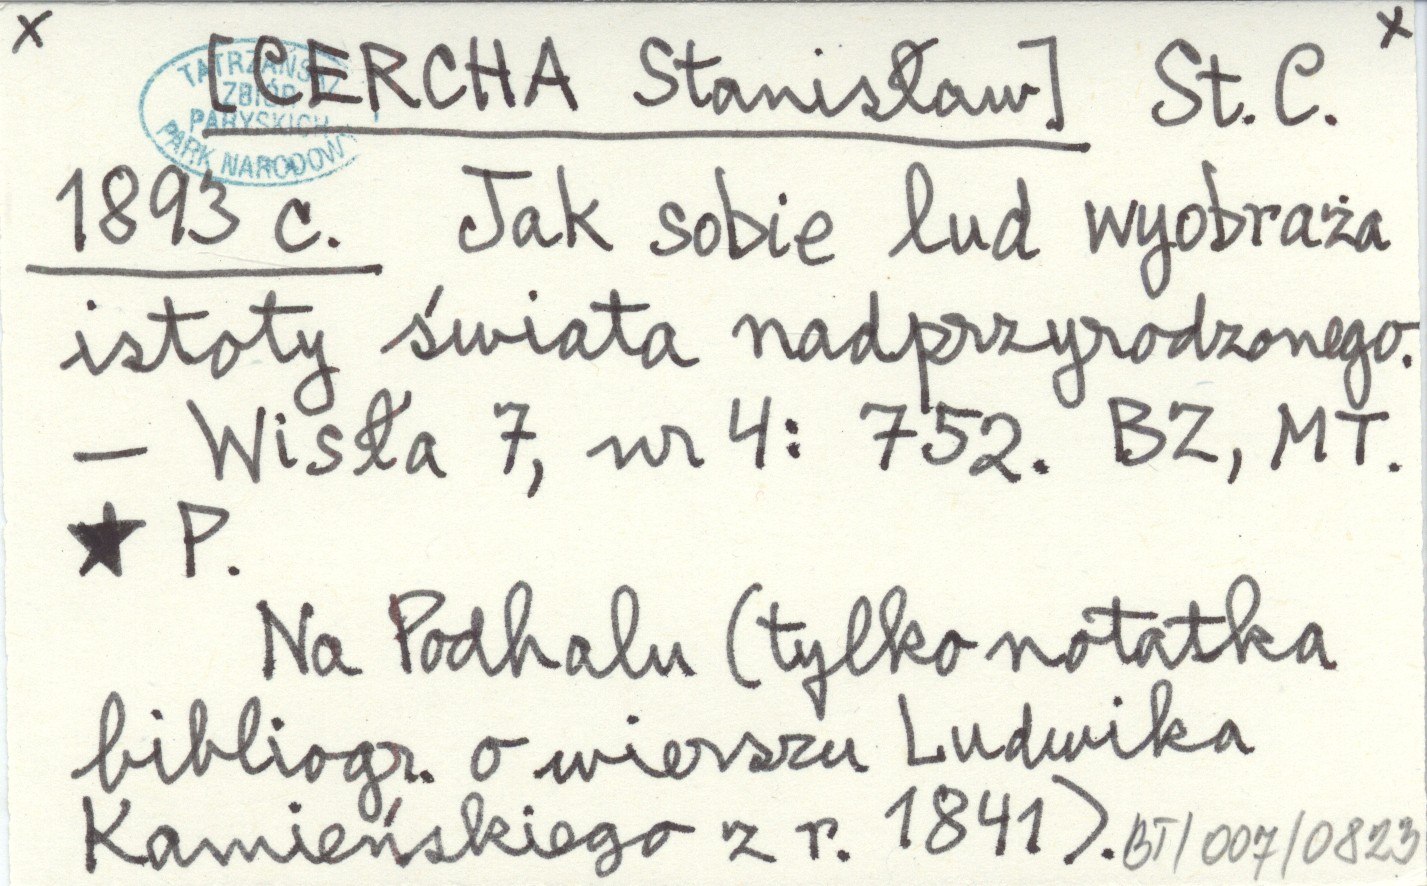 x x
[CERCHA Stanisław] St. C.
TATRZAŃSKI
ZBIÓR
PARYSKICH
PARK NARODOWY
1893 c. Jak sobie lud wyobraża
istoty świata nadprzyrodzonego.
— Wisła 7, nr 4: 752. BZ, MT.
★ P.
Na Podhalu (tylko notatka
bibliogr. o wierszu Ludwika
Kamieńskiego z r. 1841).
BT/007/0823